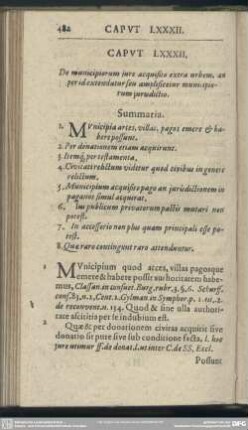 482 CAPVT LXXXII.
CAPVT LXXXII.
De municipiorum jure acquisito extra urbem, an
per id extendatur seu amplificetur municipio-
rum jurisdictio.
Summaria.
1. Municipia artes, villas, pagos emere & ha-
bere possunt.
2. Per donationem etiam acquirunt.
3. Itemq; per testamenta.
4. Civitati relictum videtur quod civibus in genere
relictum.
5. Municipium acquisito pago an jurisdictionem in
paganos simul acquirat.
6. Ius publicum privatorum pactis mutari non
potest.
7. In accessorio non plus quam principali esse po-
test.
8. Quæ raro contingunt raro attenduntur.
1 MVnicipium quod arces, villas pagosque
emere & habere possit authoritatem habe-
mus, Classan. in consuet. Burg. rubr. 3. §. 6.
conf. 83. n. 1. Cent. 1. Gylman in Symphor. p. 1. tit. 2.
de reconvent. n. 154. Quod & sine ulla authori-
tate ascititia per se indubium est.
2 Quæ & per donationem civitas acquirit sive
donatio sit pure sive sub conditione facta. l. hoc
jure utimur ff. de donat. l. ut inter C. de SS. Eccl.
Possunt